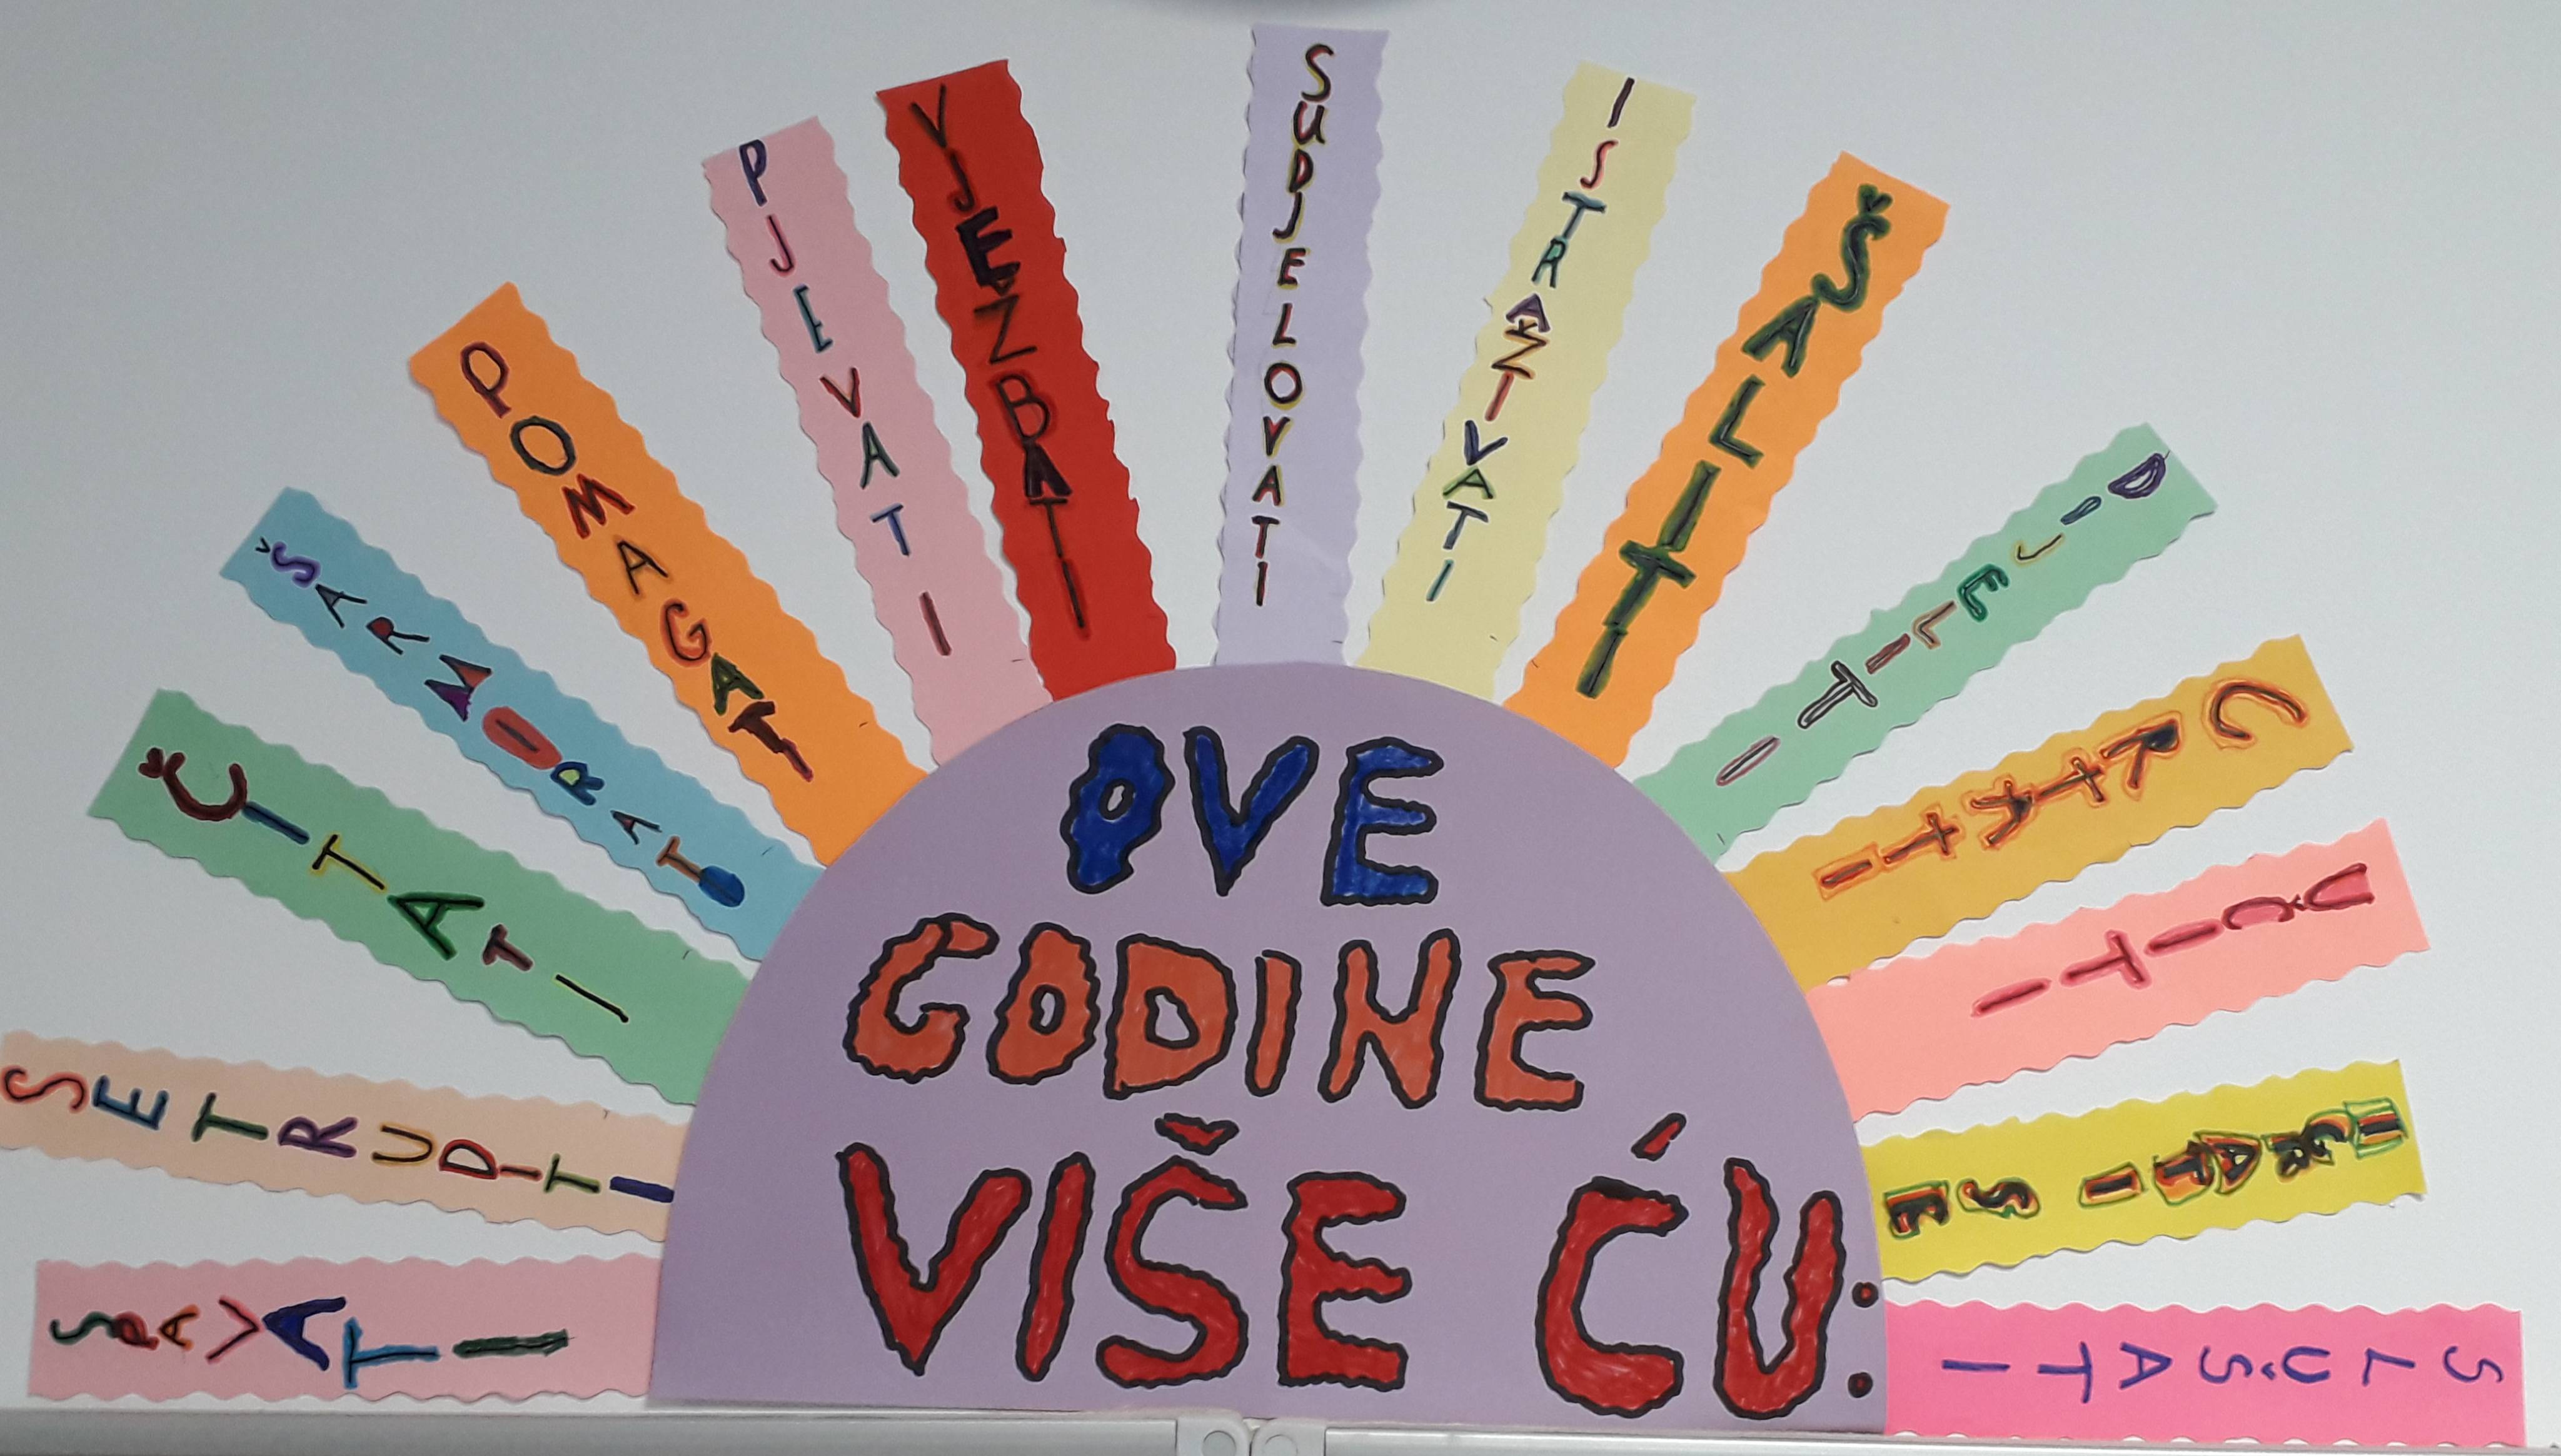 OVE
GODINE
VIŠE ĆU:
SPAVATI
SE TRUDITI
ČITATI
ŠARMIRATI
POMAGATI
PJEVATI
VJEŽBATI
SUDJELOVATI
ISTRAŽIVATI
ŠALITI
DIJELITI
CRTATI
UČITI
IGRATI SE
SLUŠATI